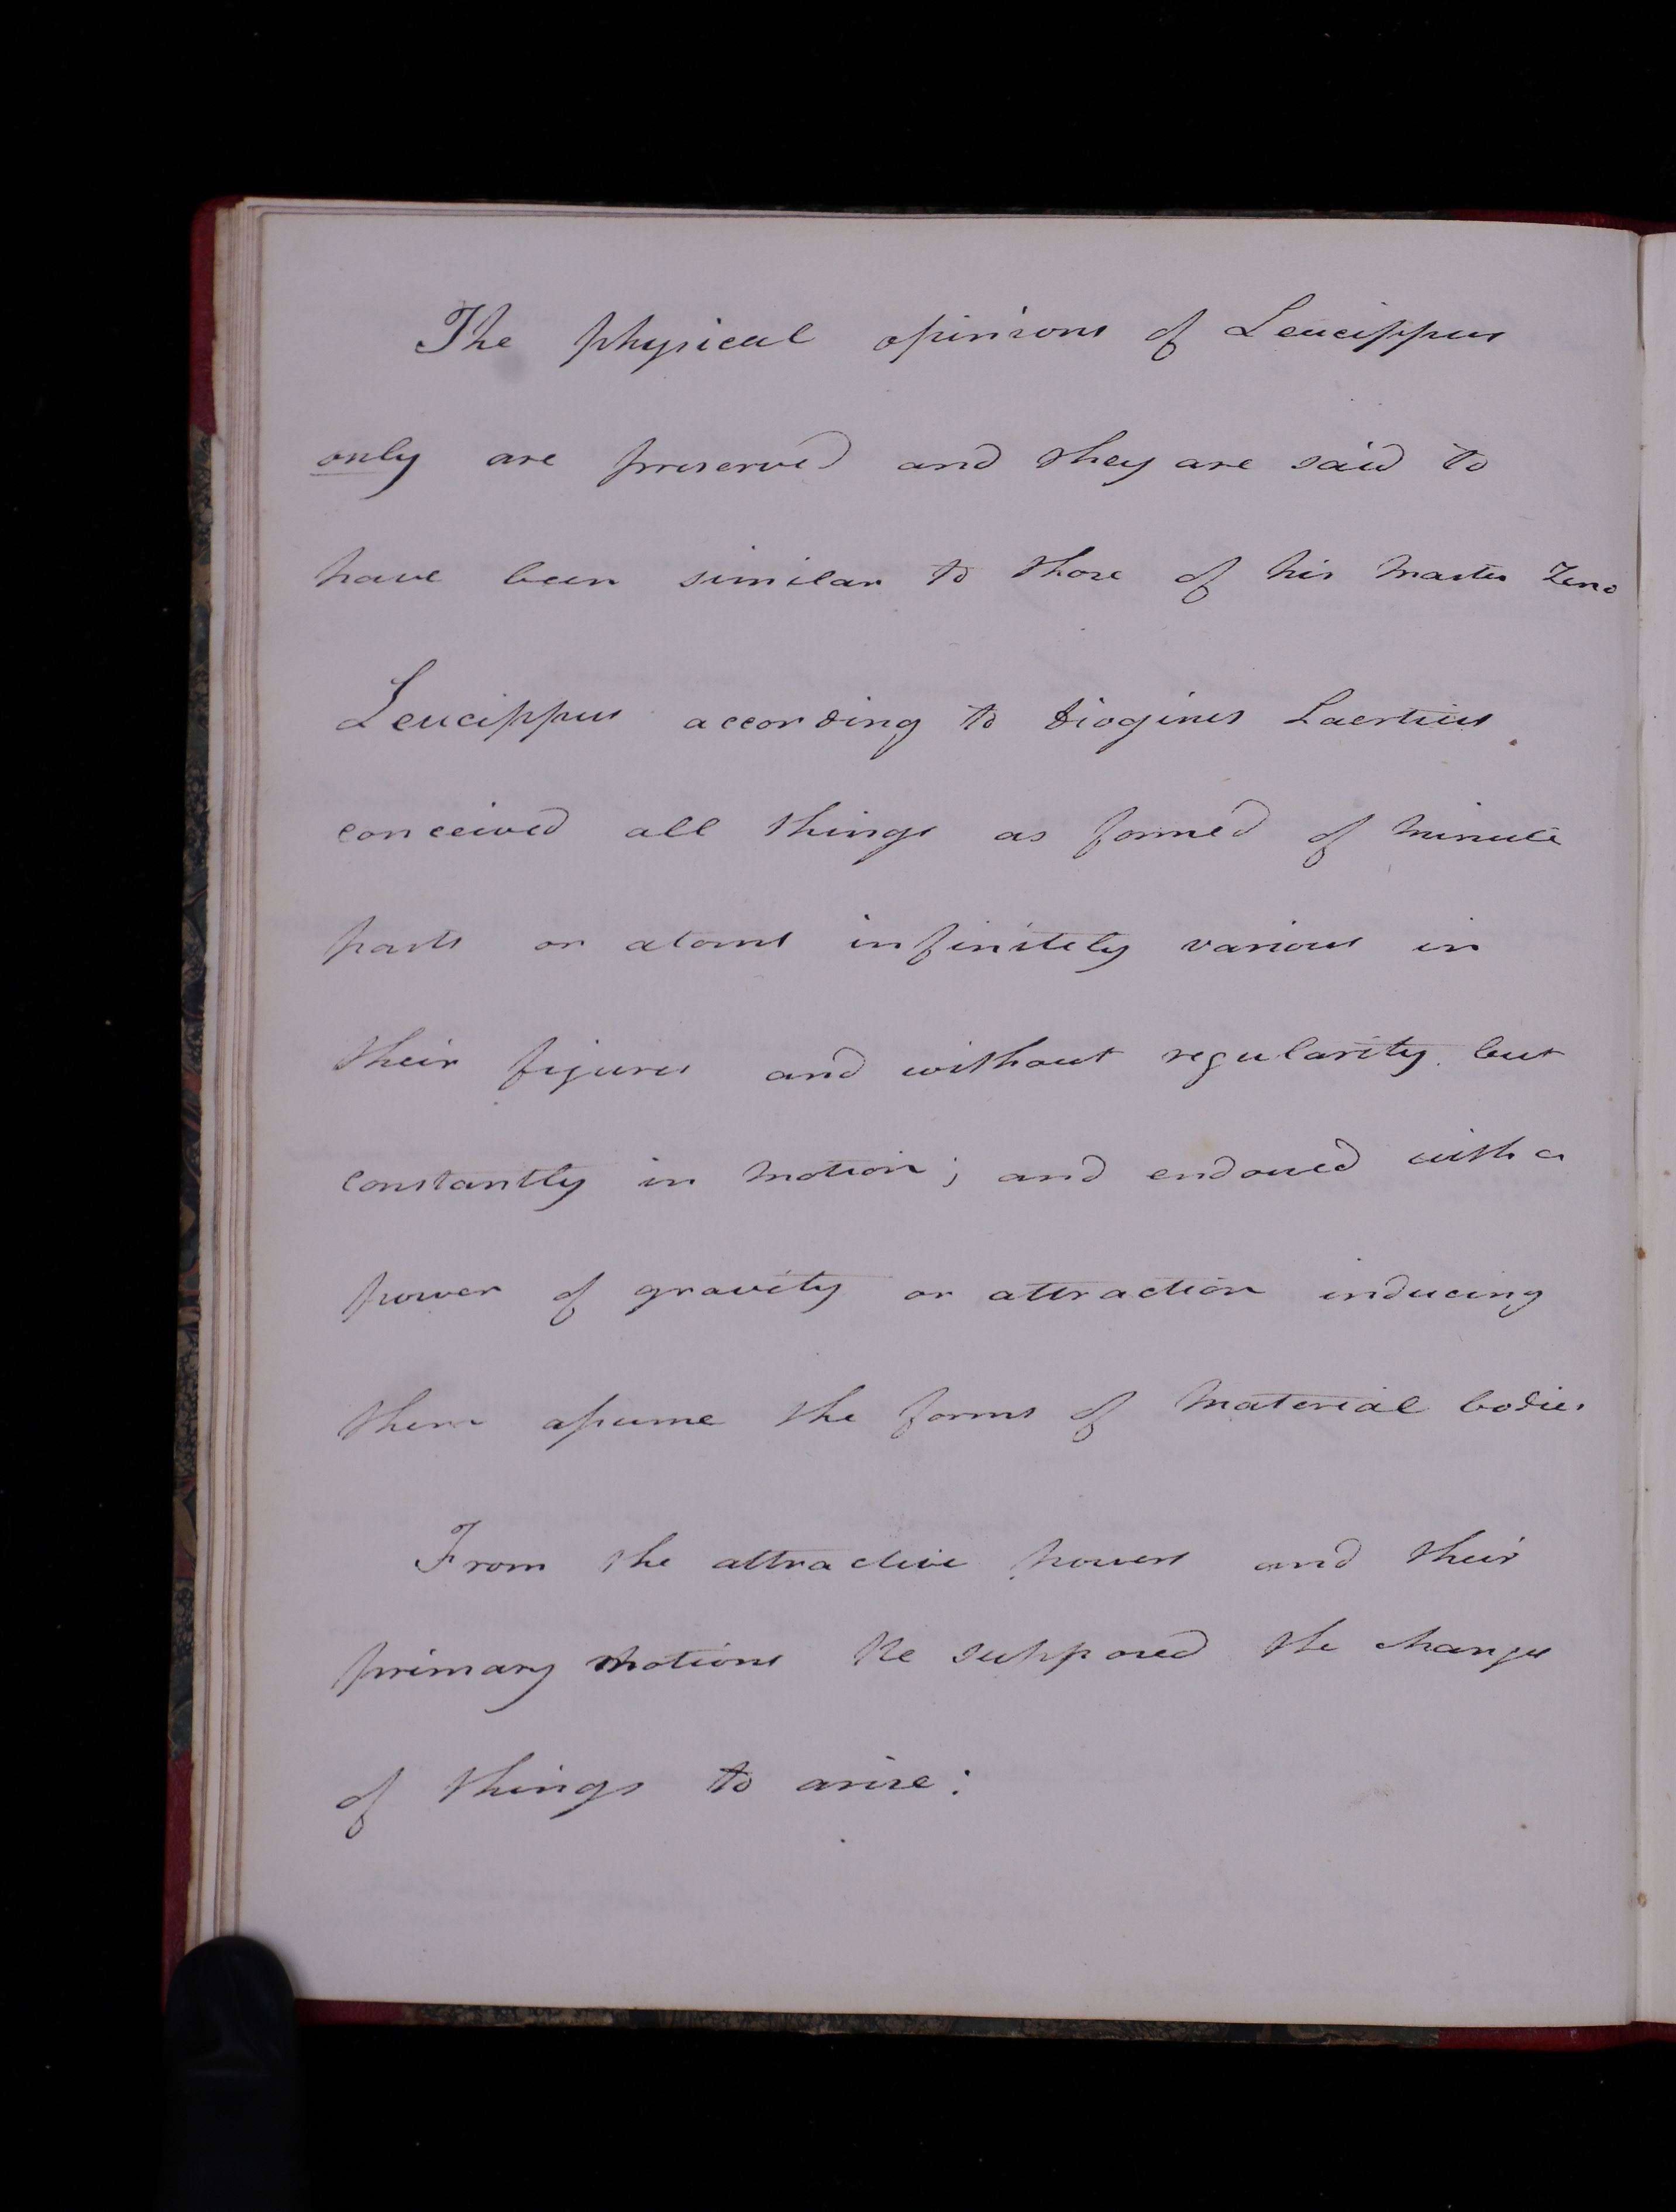 The physical opinions of Leucippus
only are preserved and they are said to
have been similar to those of his Master Zeno
Leucippus according to Diogines Laertius
conceived all things as formed of minute
parts or atoms infinitely various in
their figures and without regularity but
constantly in motion; and endowed with a
power of gravity or attraction inducing
them assume the forms of Material bodies
From the attractive powers and their
primary motions He supposed the changes
of things to arise: